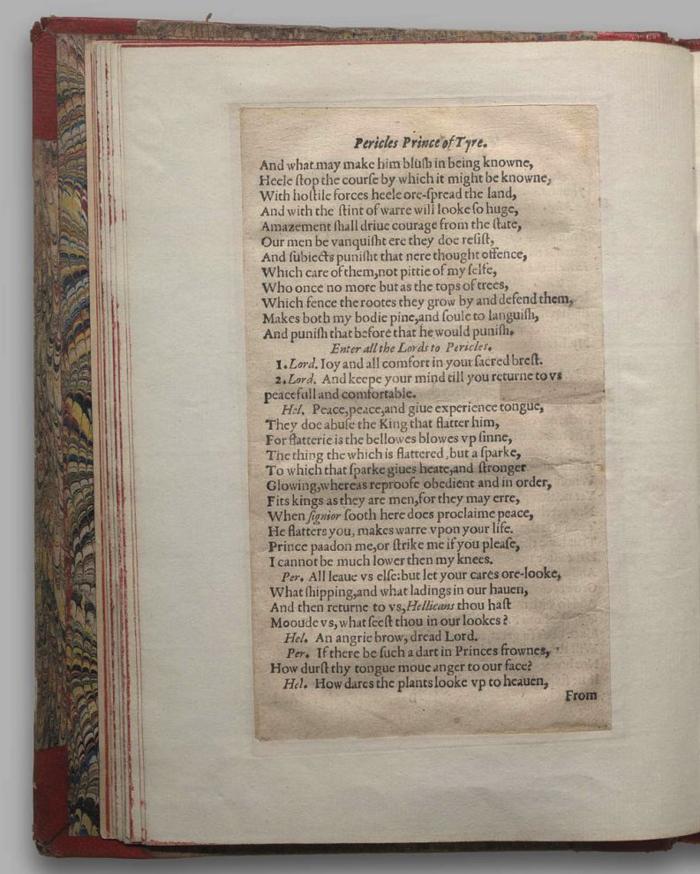 Pericles Prince of Tyre.
And what may make him bluſh in being knowne,
Heele ſtop the courſe by which it might be knowne,
With hoſtile forces heele ore-ſpread the land,
And with the ſtint of warre will looke ſo huge,
Amazement ſhall driue courage from the ſtate,
Our men be vanquiſht ere they doe reſiſt,
And ſubiects puniſht that nere thought offence,
Which care of them,not pittie of my ſelfe,
Who once no more but as the tops of trees,
Which fence the rootes they grow by and defend them,
Makes both my bodie pine,and ſoule to languiſh,
And puniſh that before that he would puniſh.
Enter all the Lords to Pericles.
1. Lord. Ioy and all comfort in your ſacred breſt.
2. Lord. And keepe your mind till you returne to vs
peacefull and comfortable.
Hel. Peace,peace,and giue experience tongue,
They doe abuſe the King that flatter him,
For flatterie is the bellowes blowes vp ſinne,
The thing the which is flattered,but a ſparke,
To which that ſparke giues heate,and ſtronger
Glowing,whereas reproofe obedient and in order,
Fits kings as they are men,for they may erre,
When ſignior ſooth here does proclaime peace,
He flatters you, makes warre vpon your life.
Prince paadon me,or ſtrike me if you pleaſe,
I cannot be much lower then my knees.
Per. All leaue vs elſe:but let your cares ore-looke,
What ſhipping,and what ladings in our hauen,
And then returne to vs,Hellicans thou haſt
Mooude vs, what ſeeſt thou in our lookes?
Hel. An angrie brow, dread Lord.
Per. If there be ſuch a dart in Princes frownes,
How durſt thy tongue moue anger to our face?
Hel. How dares the plants looke vp to heauen,
From